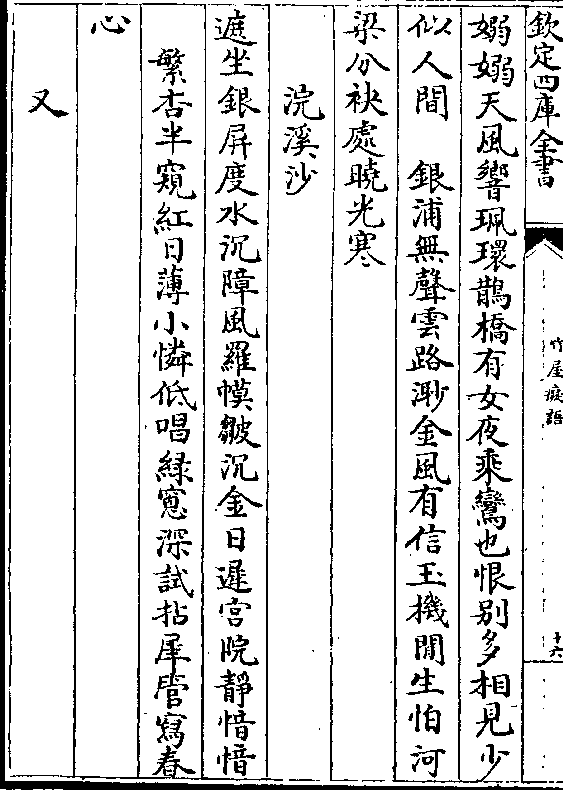 欽定四庫全書
竹屋癡語
十六
嫋嫋天風響珮環鵲橋有女夜乘鸞也恨别多相見少
似人間　銀浦無聲雲路渺金風有信玉機閒生怕河
梁分袂處曉光寒
浣溪沙
遮坐銀屏度水沉障風羅幙皺泥金日遲宮院靜愔愔
繁杏半窺紅日薄小憐低唱緑窻深試拈犀管寫春
心
又